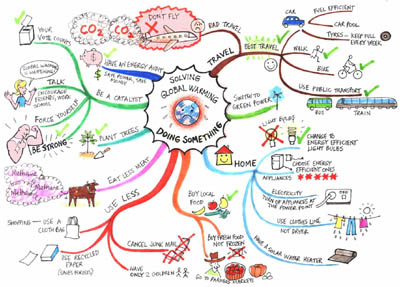 SOLVING
GLOBAL WARMING
DOING SOMETHING
TRAVEL
BAD TRAVEL
DON'T FLY
CO2
CO2
BEST TRAVEL
CAR
FUEL EFFICIENT
CAR POOL
TYRES - KEEP FULL
EVERY WEEK
WALK
BIKE
USE PUBLIC TRANSPORT
BUS
TRAIN
SWITCH TO
GREEN POWER
HOME
LIGHT BULBS
CHANGE TO
ENERGY EFFICIENT
LIGHT BULBS
APPLIANCES
CHOOSE ENERGY
EFFICIENT ONES
ELECTRICITY
TURN OFF APPLIANCES AT
THE POWER POINT
USE CLOTHES LINE
NOT DRYER
HAVE A SOLAR WATER HEATER
BUY LOCAL
FOOD
BUY FRESH FOOD
NOT FROZEN
GO TO FARMERS MARKETS
USE LESS
CANCEL JUNK MAIL
HAVE
ONLY 2 CHILDREN
SHOPPING - USE A
CLOTH BAG
USE RECYCLED
PAPER
EAT LESS MEAT
Methane
Methane
Methane
PLANT TREES
BE A CATALYST
HAVE AN ENERGY AUDIT
SAVE POWER, SAVE
MONEY
YOUR
VOTE COUNTS
TALK
GLOBAL WARMING
IS HAPPENING
ENCOURAGE
FRIENDS, WORK,
SCHOOL
FORCE YOURSELF
BE STRONG